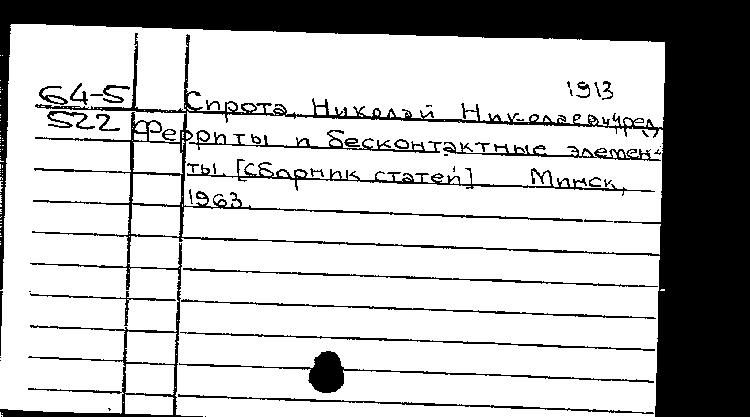 1913
64-5 Спрота, Николай Николаевич, ред.
522 Ферриты и бесконтактные элемен-
ты. [Сборник статей] Минск,
1963.